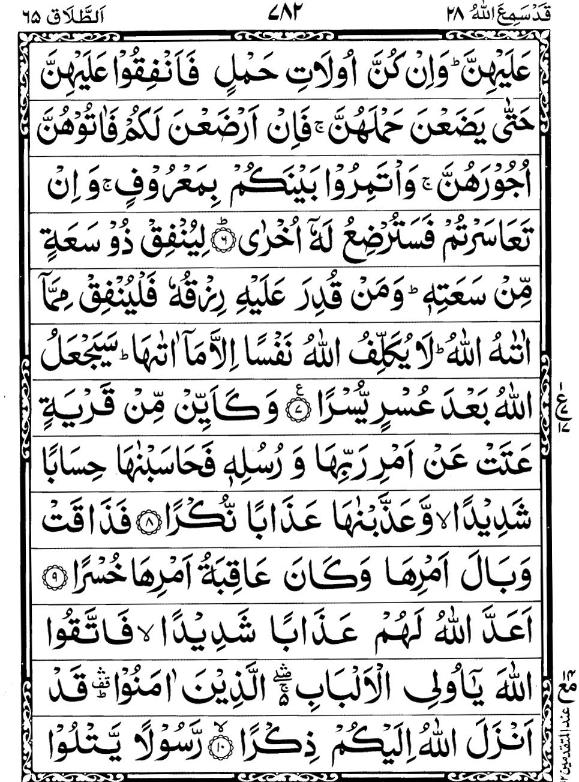 قَدْ سَمِعَ اللهُ ٢٨
٧٨٢
اَلطَّلَاق ٦٥
عَلَيْهِنَّ ؕ وَاِنْ كُنَّ اُولَاتِ حَمْلٍ فَاَنْفِقُوْا عَلَيْهِنَّ
حَتّٰى يَضَعْنَ حَمْلَهُنَّ ۚ فَاِنْ اَرْضَعْنَ لَكُمْ فَاٰتُوْهُنَّ
اُجُوْرَهُنَّ ۚ وَاْتَمِرُوْا بَيْنَكُمْ بِمَعْرُوْفٍ ۚ وَاِنْ
تَعَاسَرْتُمْ فَسَتُرْضِعُ لَهٗۤ اُخْرٰى ؕ ﴿٦﴾ لِيُنْفِقْ ذُوْ سَعَةٍ
مِّنْ سَعَتِهٖ ؕ وَمَنْ قُدِرَ عَلَيْهِ رِزْقُهٗ فَلْيُنْفِقْ مِمَّاۤ
اٰتٰىهُ اللهُ ؕ لَا يُكَلِّفُ اللهُ نَفْسًا اِلَّا مَاۤ اٰتٰىهَا ؕ سَيَجْعَلُ
اللهُ بَعْدَ عُسْرٍ يُّسْرًا ﴿٧﴾ ع وَكَاَيِّنْ مِّنْ قَرْيَةٍ
عَتَتْ عَنْ اَمْرِ رَبِّهَا وَرُسُلِهٖ فَحَاسَبْنٰهَا حِسَابًا
شَدِيْدًا ۙ وَّعَذَّبْنٰهَا عَذَابًا نُّكْرًا ﴿٨﴾ فَذَاقَتْ
وَبَالَ اَمْرِهَا وَكَانَ عَاقِبَةُ اَمْرِهَا خُسْرًا ﴿٩﴾
اَعَدَّ اللهُ لَهُمْ عَذَابًا شَدِيْدًا ۙ فَاتَّقُوا
اللهَ يٰۤاُولِى الْاَلْبَابِ ۛۚ الَّذِيْنَ اٰمَنُوْا ۛؕ قَدْ
اَنْزَلَ اللهُ اِلَيْكُمْ ذِكْرًا ۙ ﴿١٠﴾ رَّسُوْلًا يَّتْلُوْا